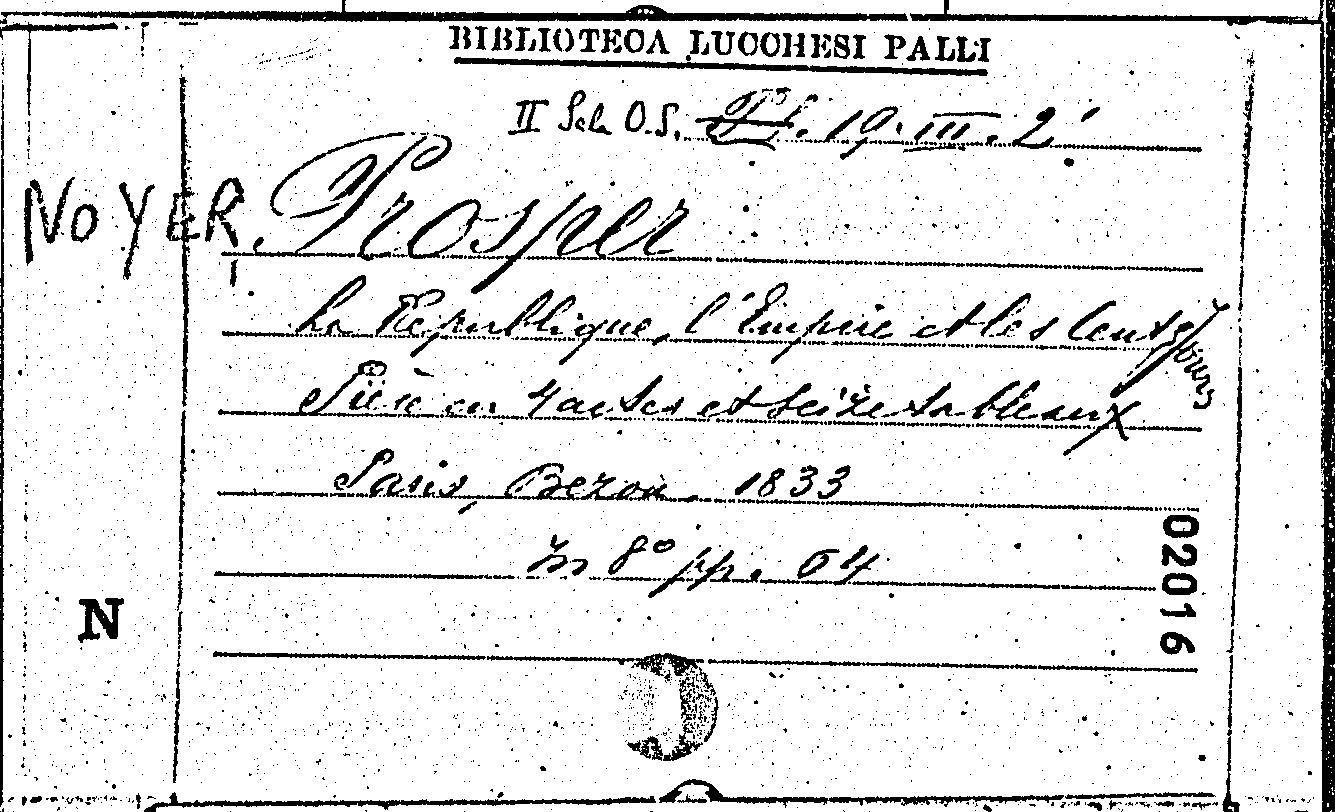 BIBLIOTECA LUCCHESI PALLI
II Sala O.S. Pf. 19. III. 2'
NOYER, Prosper
La République, l'Empire et les Cent Jours
Pièce en 4 actes et seize tableaux
Paris, Bezou. 1833
In 8° pp. 64
02016
N